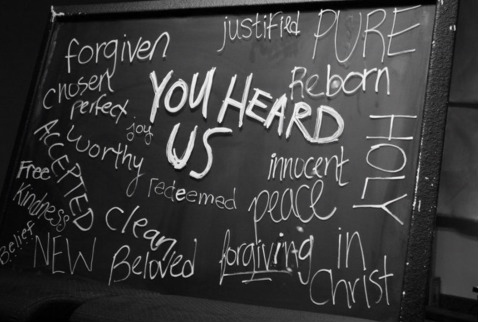 justified
PURE
forgiven
chosen
perfect
joy
YOU HEARD
US
Reborn
HOLY
ACCEPTED
worthy
innocent
Free
Kindness
redeemed
peace
Belief
NEW
clean
Beloved
forgiving
in
Christ